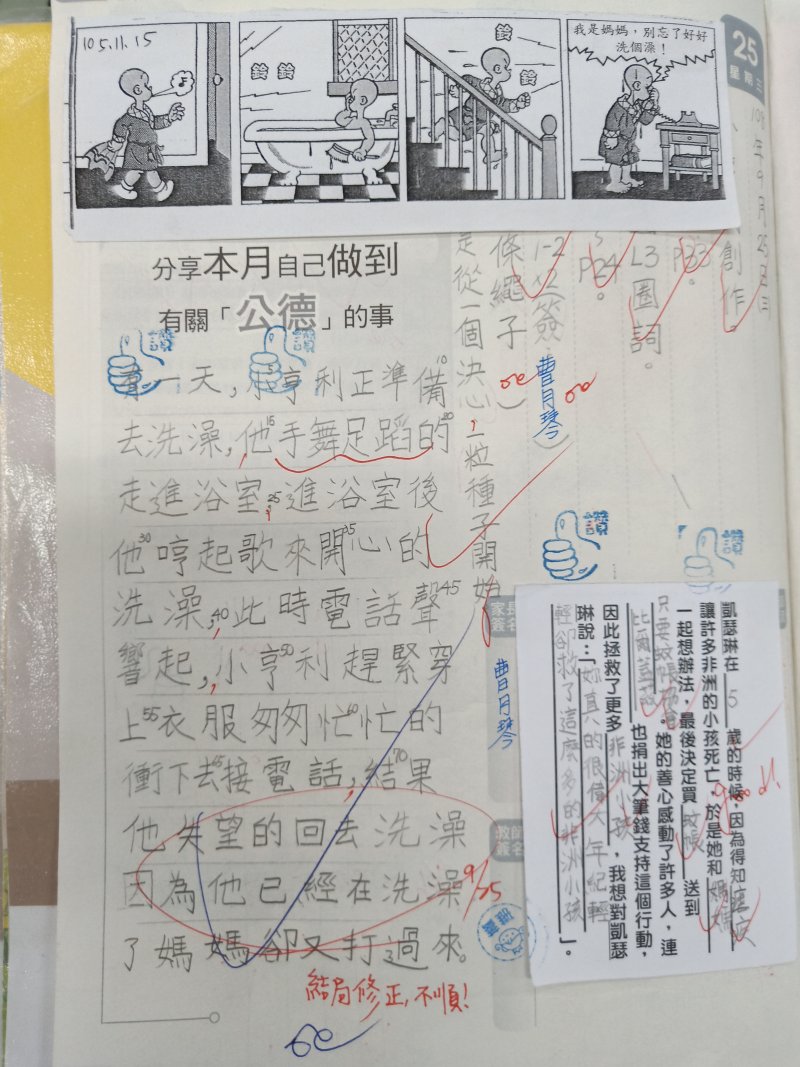 105.11.15
鈴 鈴
鈴
鈴
我是媽媽，別忘了好好
洗個澡！
25
星期三
109年9月25日
創作。
P33。
L3圈詞。
P24。
1-2
簽
條繩子）
是從一個決心，一粒種子開始
曹月琴
分享本月自己做到
有關「公德」的事
讚
讚
有一天，小亨利正準備
去洗澡，他手舞足蹈的
走進浴室，進浴室後
他哼起歌來開心的
洗澡，此時電話聲
響起，小亨利趕緊穿
上衣服匆匆忙忙的
衝下去接電話，結果
他失望的回去洗澡
因為他已經在洗澡
了媽媽卻又打過來。
10
15
20
25
30
35
40
45
50
55
60
65
70
結局修正，不順！
9/25
讚
讚
家長
簽名
曹月琴
教師
簽名
凱瑟琳在5歲的時候，因為得知瘧疾
讓許多非洲的小孩死亡，於是她和媽媽
一起想辦法，最後決定買蚊帳送到
只要蚊帳
。她的善心感動了許多人，連
比爾蓋茲也捐出大筆錢支持這個行動，
因此拯救了更多非洲小孩，我想對凱瑟
琳說：「妳真的很偉大年紀輕
輕卻救了這麼多的非洲小孩」。
good!